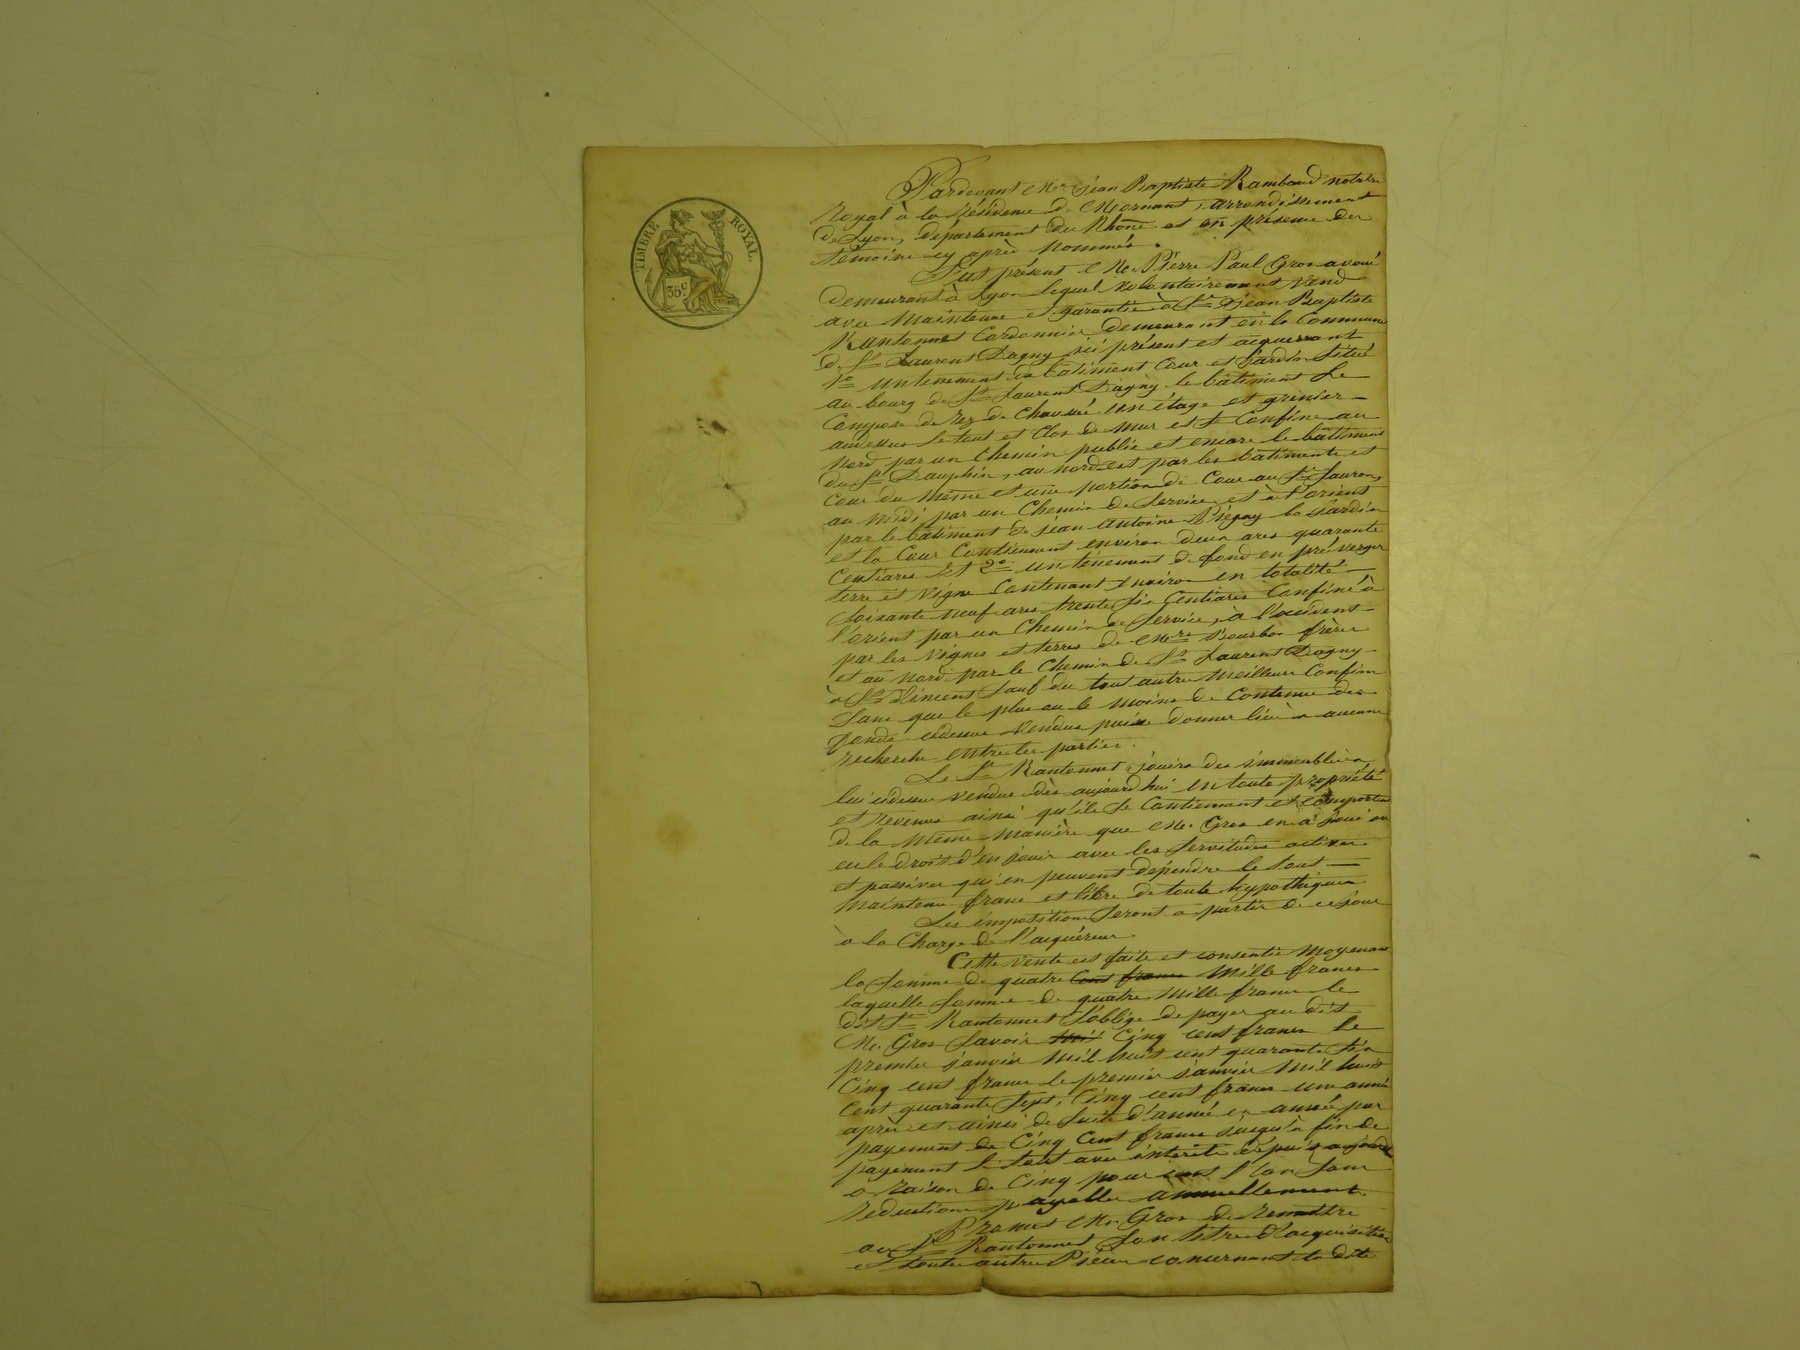 TIMBRE ROYAL.
35 c
Pardevant Me Jean Baptiste Rambaud notaire
Royal à la résidence de Mornant, arrondissement
de Lyon, département du Rhône et en présence des
témoins cy après nommés.
Fut présent Me Pierre Paul Gros avoué
demeurant à Lyon lequel volontairement vend
avec maintenue et garantie à Sr Jean Baptiste
Rantonnet Cordonnier demeurant en la Commune
de St Laurent Dagny ici présent et acquerrant
1o un tennement de bâtiment Cour et Jardin situé
au bourg de St Laurent Dagny le bâtiment se
Compose de rez de chaussé un étage et grenier
audessus le tout est clos de mur et se Confine au
nord par un chemin public et encore le bâtiment
du Sr Dauphin, au nord-est par les bâtiments et
Cour du même et une portion de Cour au Sr Jauron,
au midi par un chemin de service et à l'orient
par le bâtiment de jean Antoine Piégay le jardin
et la Cour Contiennent environ deux ares quarante
Centiares Et 2o un tènement de fond en pré verger
terre et vigne Contenant environ en totalité
soixante neuf ares trente six Centiares Confiné à
l'orient par un chemin de service, à l'occident
par les vignes et terres de Mrs Bourbon frères
et au nord par le chemin de St Laurent Dagny
à St Vincent sauf du tout autres meilleurs Confins
sans que le plus ou le moins de Contenue des
fonds cidessus vendus puisse donner lieu à aucune
recherche entre les parties.
Le Sr Rantonnet jouira des immeubles à
lui cidessus vendus dès aujourd'hui en toute propriété
et revenus ainsi qu'ils se Contiennent et comportent
de la même manière que Me Gros en a joui ou
eu le droit d'en jouir avec les servitudes actives
et passives qui en peuvent dépendre le tout
maintenu franc et libre de toute hypothèques
Les impositions seront à partir de ce jour
à la charge de l'acquéreur.
Cette vente est faite et consentie moyenant
la somme de quatre cent francs mille francs
laquelle somme de quatre mille francs le
dit Sr Rantonnet s'oblige de payer au dit
Me Gros savoir mil Cinq cent francs le
premier janvier mil huit cent quarante six
Cinq cent francs le premier janvier mil huit
Cent quarante sept, Cinq cent francs une année
après et ainsi de suite d'année en année par
payement de Cinq Cent francs jusqu'à fin de
payement le tout avec intérêts depuis aujourd'hui
à raison de Cinq pour cent l'an sans
réduction payable annuellement.
Promet Me Gros de remettre
au Sr Rantonnet son titre d'acquisition
et toutes autres Pièces concernant la dite